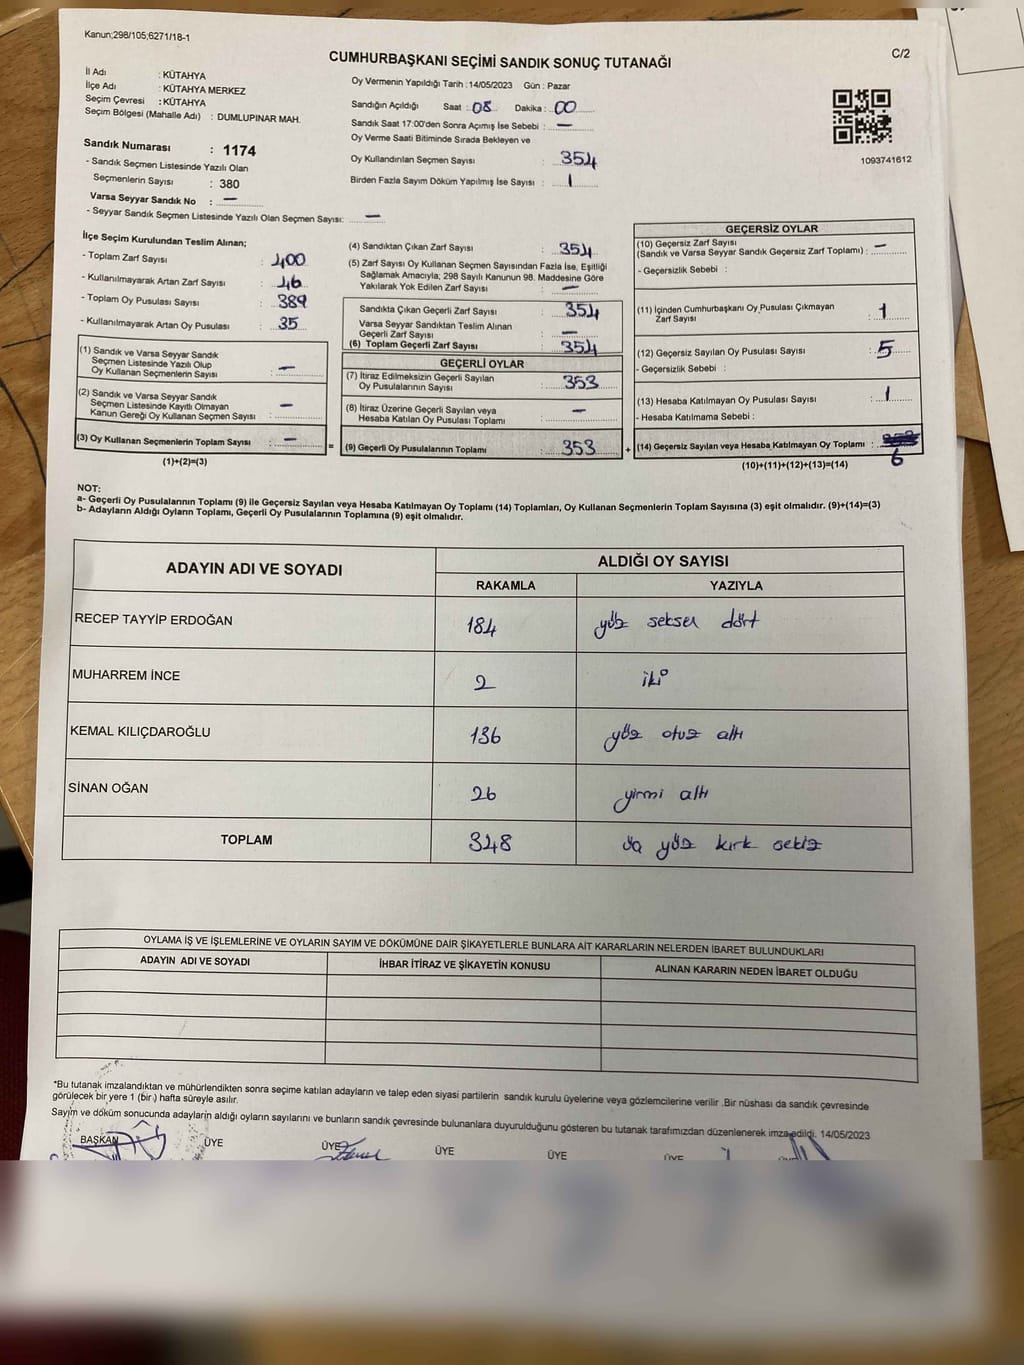 Kanun;298/105;6271/18-1
C/2
CUMHURBAŞKANI SEÇİMİ SANDIK SONUÇ TUTANAĞI
İl Adı : KÜTAHYA
İlçe Adı : KÜTAHYA MERKEZ
Seçim Çevresi : KÜTAHYA
Seçim Bölgesi (Mahalle Adı) : DUMLUPINAR MAH.
Sandık Numarası : 1174
- Sandık Seçmen Listesinde Yazılı Olan
Seçmenlerin Sayısı : 380
Varsa Seyyar Sandık No : —
- Seyyar Sandık Seçmen Listesinde Yazılı Olan Seçmen Sayısı: —
Oy Vermenin Yapıldığı Tarih : 14/05/2023 Gün : Pazar
Sandığın Açıldığı Saat : 08 Dakika : 00
Sandık Saat 17:00'den Sonra Açımış İse Sebebi : —
Oy Verme Saati Bitiminde Sırada Bekleyen ve
Oy Kullandırılan Seçmen Sayısı : 354
Birden Fazla Sayım Döküm Yapılmış İse Sayısı : 1
1093741612
İlçe Seçim Kurulundan Teslim Alınan;
- Toplam Zarf Sayısı : 400
- Kullanılmayarak Artan Zarf Sayısı : 46
- Toplam Oy Pusulası Sayısı : 389
- Kullanılmayarak Artan Oy Pusulası : 35
(1) Sandık ve Varsa Seyyar Sandık
Seçmen Listesinde Yazılı Olup
Oy Kullanan Seçmenlerin Sayısı : —
(2) Sandık ve Varsa Seyyar Sandık
Seçmen Listesinde Kayıtlı Olmayan
Kanun Gereği Oy Kullanan Seçmen Sayısı : —
(3) Oy Kullanan Seçmenlerin Toplam Sayısı : — =
(1)+(2)=(3)
(4) Sandıktan Çıkan Zarf Sayısı : 354
(5) Zarf Sayısı Oy Kullanan Seçmen Sayısından Fazla İse, Eşitliği
Sağlamak Amacıyla; 298 Sayılı Kanunun 98. Maddesine Göre
Yakılarak Yok Edilen Zarf Sayısı : —
Sandıkta Çıkan Geçerli Zarf Sayısı : 354
Varsa Seyyar Sandıktan Teslim Alınan
Geçerli Zarf Sayısı : —
(6) Toplam Geçerli Zarf Sayısı : 354
GEÇERLİ OYLAR
(7) İtiraz Edilmeksizin Geçerli Sayılan
Oy Pusulalarının Sayısı : 353
(8) İtiraz Üzerine Geçerli Sayılan veya
Hesaba Katılan Oy Pusulası Toplamı : —
(9) Geçerli Oy Pusulalarının Toplamı : 353 +
GEÇERSİZ OYLAR
(10) Geçersiz Zarf Sayısı
(Sandık ve Varsa Seyyar Sandık Geçersiz Zarf Toplamı) : —
- Geçersizlik Sebebi :
(11) İçinden Cumhurbaşkanı Oy Pusulası Çıkmayan
Zarf Sayısı : 1
(12) Geçersiz Sayılan Oy Pusulası Sayısı : 5
- Geçersizlik Sebebi :
(13) Hesaba Katılmayan Oy Pusulası Sayısı : 1
- Hesaba Katılmama Sebebi :
(14) Geçersiz Sayılan veya Hesaba Katılmayan Oy Toplamı :
6
(10)+(11)+(12)+(13)=(14)
NOT:
a- Geçerli Oy Pusulalarının Toplamı (9) ile Geçersiz Sayılan veya Hesaba Katılmayan Oy Toplamı (14) Toplamları, Oy Kullanan Seçmenlerin Toplam Sayısına (3) eşit olmalıdır. (9)+(14)=(3)
b- Adayların Aldığı Oyların Toplamı, Geçerli Oy Pusulalarının Toplamına (9) eşit olmalıdır.
ADAYIN ADI VE SOYADI
ALDIĞI OY SAYISI
RAKAMLA YAZIYLA
RECEP TAYYİP ERDOĞAN 184 yüz seksen dört
MUHARREM İNCE 2 iki
KEMAL KILIÇDAROĞLU 136 yüz otuz altı
SİNAN OĞAN 26 yirmi altı
TOPLAM 348 üç yüz kırk sekiz
OYLAMA İŞ VE İŞLEMLERİNE VE OYLARIN SAYIM VE DÖKÜMÜNE DAİR ŞİKAYETLERLE BUNLARA AİT KARARLARIN NELERDEN İBARET BULUNDUKLARI
ADAYIN ADI VE SOYADI İHBAR İTİRAZ VE ŞİKAYETİN KONUSU ALINAN KARARIN NEDEN İBARET OLDUĞU
*Bu tutanak imzalandıktan ve mühürlendikten sonra seçime katılan adayların ve talep eden siyasi partilerin sandık kurulu üyelerine veya gözlemcilerine verilir .Bir nüshası da sandık çevresinde
görülecek bir yere 1 (bir ) hafta süreyle asılır.
Sayım ve döküm sonucunda adayların aldığı oyların sayılarını ve bunların sandık çevresinde bulunanlara duyurulduğunu gösteren bu tutanak tarafımızdan düzenlenerek imza edildi. 14/05/2023
BAŞKAN ÜYE ÜYE ÜYE ÜYE ÜYE